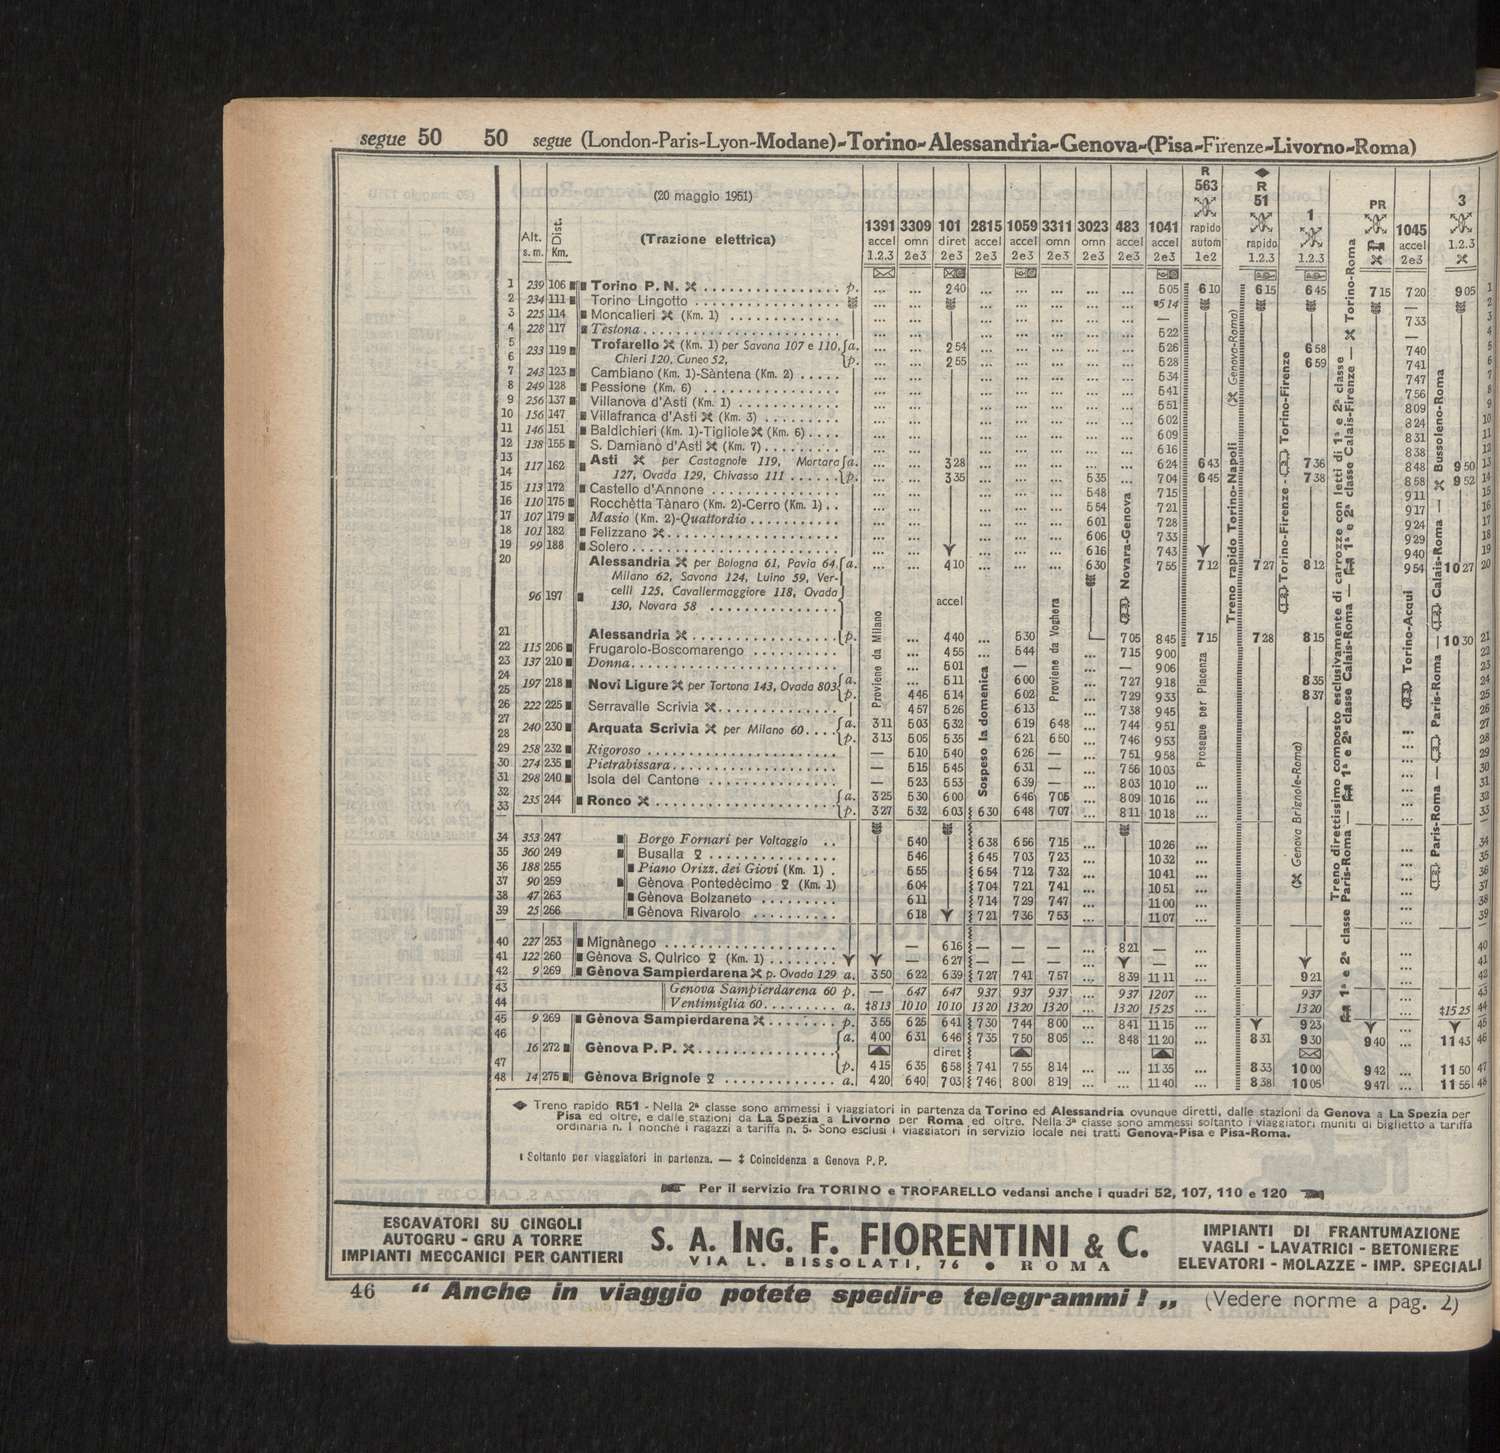 segue 50 50 segue (London-Paris-Lyon-Modane)-Torino-Alessandria-Genova-(Pisa-Firenze-Livorno-Roma)
Alt. s. m. Dist. Km. (20 maggio 1951) (Trazione elettrica)
1391 accel 1.2.3
3309 omn 2e3
101 diret 2e3
2815 accel 2e3
1059 accel 2e3
3311 omn 2e3
3023 omn 2e3
483 accel 2e3
1041 accel 2e3
R 563 rapido autom 1e2
R 51 rapido 1.2.3
1 1.2.3
PR
1045 accel 2e3
3 1.2.3
1 239 106 Torino P. N. p. ... ... 2 40 ... ... ... ... ... 5 05 6 10 6 15 6 45 7 15 7 20 9 05 1
2 234 111 Torino Lingotto ... ... ... ... ... ... ... 5 14 2
3 225 114 Moncalieri (Km. 1) ... ... ... ... ... ... ... — 7 33 3
4 228 117 Testona ... ... ... ... ... ... ... 5 22 — 4
5 233 119 Trofarello (Km. 1) per Savona 107 e 110, a. ... ... 2 54 ... ... ... ... ... 5 26 6 58 7 40 5
6 Chieri 120, Cuneo 52, p. ... ... 2 55 ... ... ... ... ... 5 28 6 59 7 41 6
7 243 123 Cambiano (Km. 1)-Sàntena (Km. 2) ... ... ... ... ... ... ... 5 34 7 47 7
8 249 128 Pessione (Km. 6) ... ... ... ... ... ... ... 5 41 7 56 8
9 256 137 Villanova d'Asti (Km. 1) ... ... ... ... ... ... ... 5 51 8 09 9
10 156 147 Villafranca d'Asti (Km. 3) ... ... ... ... ... ... ... 6 02 8 24 10
11 146 151 Baldichieri (Km. 1)-Tigliole (Km. 6) ... ... ... ... ... ... ... 6 09 8 31 11
12 138 155 S. Damiano d'Asti (Km. 7) ... ... ... ... ... ... ... 6 16 8 38 12
13 117 162 Asti per Castagnole 119, Mortara a. ... ... 3 28 ... ... ... ... ... 6 24 6 43 7 36 8 48 9 50 13
14 127, Ovada 129, Chivasso 111 p. ... ... 3 35 ... ... ... 5 35 ... 7 04 6 45 7 38 8 58 9 52 14
15 113 172 Castello d'Annone ... ... ... ... ... 5 48 7 15 9 11 15
16 110 175 Rocchètta Tànaro (Km. 2)-Cerro (Km. 1) ... ... ... ... ... 5 54 7 21 9 17 16
17 107 179 Masio (Km. 2)-Quattordio ... ... ... ... ... 6 01 7 28 9 24 17
18 101 182 Felizzano ... ... ... ... ... 6 06 7 33 9 29 18
19 99 188 Solero ... ... ... ... ... 6 16 7 43 9 40 19
20 Alessandria per Bologna 61, Pavia 64, a. ... ... 4 10 ... ... ... 6 30 7 55 7 12 7 27 8 12 9 54 10 27 20
Milano 62, Savona 124, Luino 59, Ver-
96 197 celli 125, Cavallermaggiore 118, Ovada accel
130, Novara 58
21 Alessandria p. ... 4 40 ... 5 30 7 05 8 45 7 15 7 28 8 15 10 30 21
22 115 206 Frugarolo-Boscomarengo ... 4 55 5 44 ... 7 15 9 00 22
23 137 210 Donna ... 5 01 — ... — 9 06 23
24 197 218 Novi Ligure per Tortona 143, Ovada 803 a. ... 5 11 6 00 ... 7 27 9 18 8 35 24
25 p. 4 46 5 14 6 02 ... 7 29 9 33 8 37 25
26 222 225 Serravalle Scrivia 4 57 5 26 6 13 ... 7 38 9 45 26
27 240 230 Arquata Scrivia per Milano 60 a. 3 11 5 03 5 32 6 19 6 48 ... 7 44 9 51 27
28 p. 3 13 5 05 5 35 6 21 6 50 ... 7 46 9 53 28
29 258 232 Rigoroso — 5 10 5 40 6 26 — ... 7 51 9 58 29
30 274 235 Pietrabissara — 5 15 5 45 6 31 — ... 7 56 10 03 30
31 298 240 Isola del Cantone — 5 23 5 53 6 39 — ... 8 03 10 10 31
32 235 244 Ronco a. 3 25 5 30 6 00 6 46 7 05 ... 8 09 10 16 ... 32
33 p. 3 27 5 32 6 03 6 30 6 48 7 07 ... 8 11 10 18 ... 33
34 353 247 Borgo Fornari per Voltaggio 5 40 6 38 6 56 7 15 ... 10 26 ... 34
35 360 249 Busalla 5 46 6 45 7 03 7 23 ... 10 32 ... 35
36 188 255 Piano Orizz. dei Giovi (Km. 1) 5 55 6 54 7 12 7 32 ... 10 41 ... 36
37 90 259 Gènova Pontedècimo (Km. 1) 6 04 7 04 7 21 7 41 ... 10 51 ... 37
38 47 263 Gènova Bolzaneto 6 11 7 14 7 29 7 47 ... 11 00 ... 38
39 25 266 Gènova Rivarolo 6 18 7 21 7 36 7 53 ... 11 07 ... 39
40 227 253 Mignànego — 6 16 — — — ... 8 21 — ... 40
41 122 260 Gènova S. Quirico (Km. 1) — 6 27 — — — ... — ... 41
42 9 269 Gènova Sampierdarena p. Ovada 129 a. 3 50 6 22 6 39 7 27 7 41 7 57 ... 8 39 11 11 ... 9 21 42
43 Genova Sampierdarena 60 p. — 6 47 6 47 9 37 9 37 9 37 ... 9 37 12 07 ... 9 37 43
44 Ventimiglia 60 a. ‡8 13 10 10 10 10 13 20 13 20 13 20 ... 13 20 15 25 ... 13 20 ‡15 25 44
45 9 269 Gènova Sampierdarena p. 3 55 6 25 6 41 7 30 7 44 8 00 ... 8 41 11 15 ... 9 23 45
46 16 272 Gènova P. P. a. 4 00 6 31 6 46 7 35 7 50 8 05 ... 8 48 11 20 ... 8 31 9 30 9 40 ... 11 43 46
diret
47 p. 4 15 6 35 6 58 7 41 7 55 8 14 ... ... 11 35 ... 8 33 10 00 9 42 ... 11 50 47
48 14 275 Gènova Brignole a. 4 20 6 40 7 03 7 46 8 00 8 19 ... ... 11 40 ... 8 38 10 05 9 47 ... 11 55 48
Proviene da Milano
Sospeso la domenica
Proviene da Voghera
Novara-Genova
Prosegue per Piacenza
Treno rapido Torino-Napoli (Genova-Roma)
Torino-Firenze - Torino-Firenze
(Genova Brignole-Roma)
Treno direttissimo composto esclusivamente di carrozze con letti di 1ª e 2ª classe
1ª e 2ª classe Paris-Roma — 1ª e 2ª classe Calais-Roma — 1ª e 2ª classe Calais-Firenze — Torino-Roma
Torino-Acqui
Paris-Roma — Paris-Roma — Calais-Roma — Bussoleno-Roma
Treno rapido R51 - Nella 2ª classe sono ammessi i viaggiatori in partenza da Torino ed Alessandria ovunque diretti, dalle stazioni da Genova a La Spezia per
Pisa ed oltre, e dalle stazioni da La Spezia a Livorno per Roma ed oltre. Nella 3ª classe sono ammessi soltanto i viaggiatori muniti di biglietto a tariffa
ordinaria n. 1 nonchè i ragazzi a tariffa n. 5. Sono esclusi i viaggiatori in servizio locale nei tratti Genova-Pisa e Pisa-Roma.
Soltanto per viaggiatori in partenza. — ‡ Coincidenza a Genova P. P.
Per il servizio fra TORINO e TROFARELLO vedansi anche i quadri 52, 107, 110 e 120
ESCAVATORI SU CINGOLI
AUTOGRU - GRU A TORRE
IMPIANTI MECCANICI PER CANTIERI
S. A. ING. F. FIORENTINI & C.
VIA L. BISSOLATI, 76 ● ROMA
IMPIANTI DI FRANTUMAZIONE
VAGLI - LAVATRICI - BETONIERE
ELEVATORI - MOLAZZE - IMP. SPECIALI
46 " Anche in viaggio potete spedire telegrammi ! „ (Vedere norme a pag. 2)